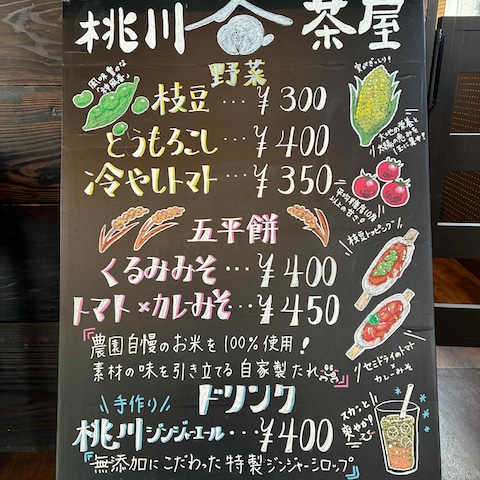 桃川 茶屋
野菜
風味豊かな
「神風香」
枝豆…¥300
食べざっしり!
とうもろこし…¥400
大地の栄養と
太陽の恵みを
冷やしトマト…¥350
平均糖度10度
以上の甘さ!
五平餅
枝豆トッピング
くるみみそ…¥400
トマト×カレーみそ…¥450
セミドライのトマト
カレーみそ
『農園自慢のお米を100%使用!
素材の味を引き立てる自家製たれ』
ドリンク
手作り
スカッと
爽やか?
桃川ジンジャーエール…¥400
『無添加にこだわった特製ジンジャーシロップ』